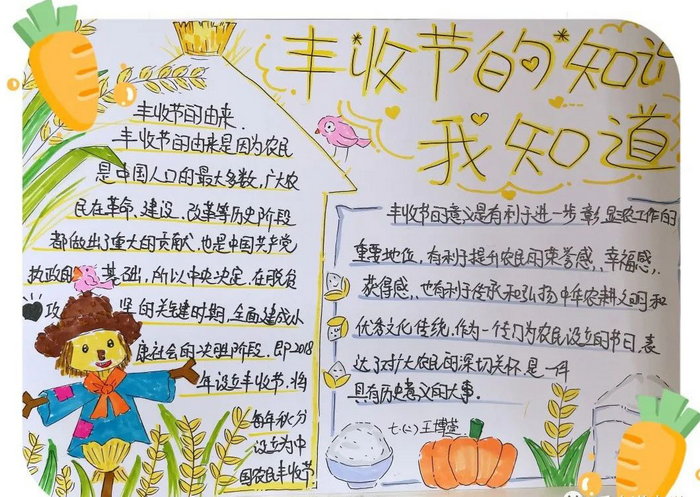 丰收节的知识
我知道
丰收节的由来.
丰收节的由来是因为农民
是中国人口的最大多数,广大农
民在革命、建设、改革等历史阶段
都做出了重大的贡献.也是中国共产党
执政的基础,所以中央决定.在脱贫
攻坚的关键时期,全面建成小
康社会的决胜阶段.即2018
年设立丰收节,将
每年秋分
设立为中
国农民丰收节
丰收节的意义是有利于进一步彰显农工作的
重要地位,有利于提升农民的荣誉感、幸福感、
获得感、也有利于传承和弘扬中华农耕文明和
优秀文化传统,作为一个门为农民设立的节日,表
达了对广大农民的深切关怀.是一件
具有历史意义的大事.
七.(二)王博